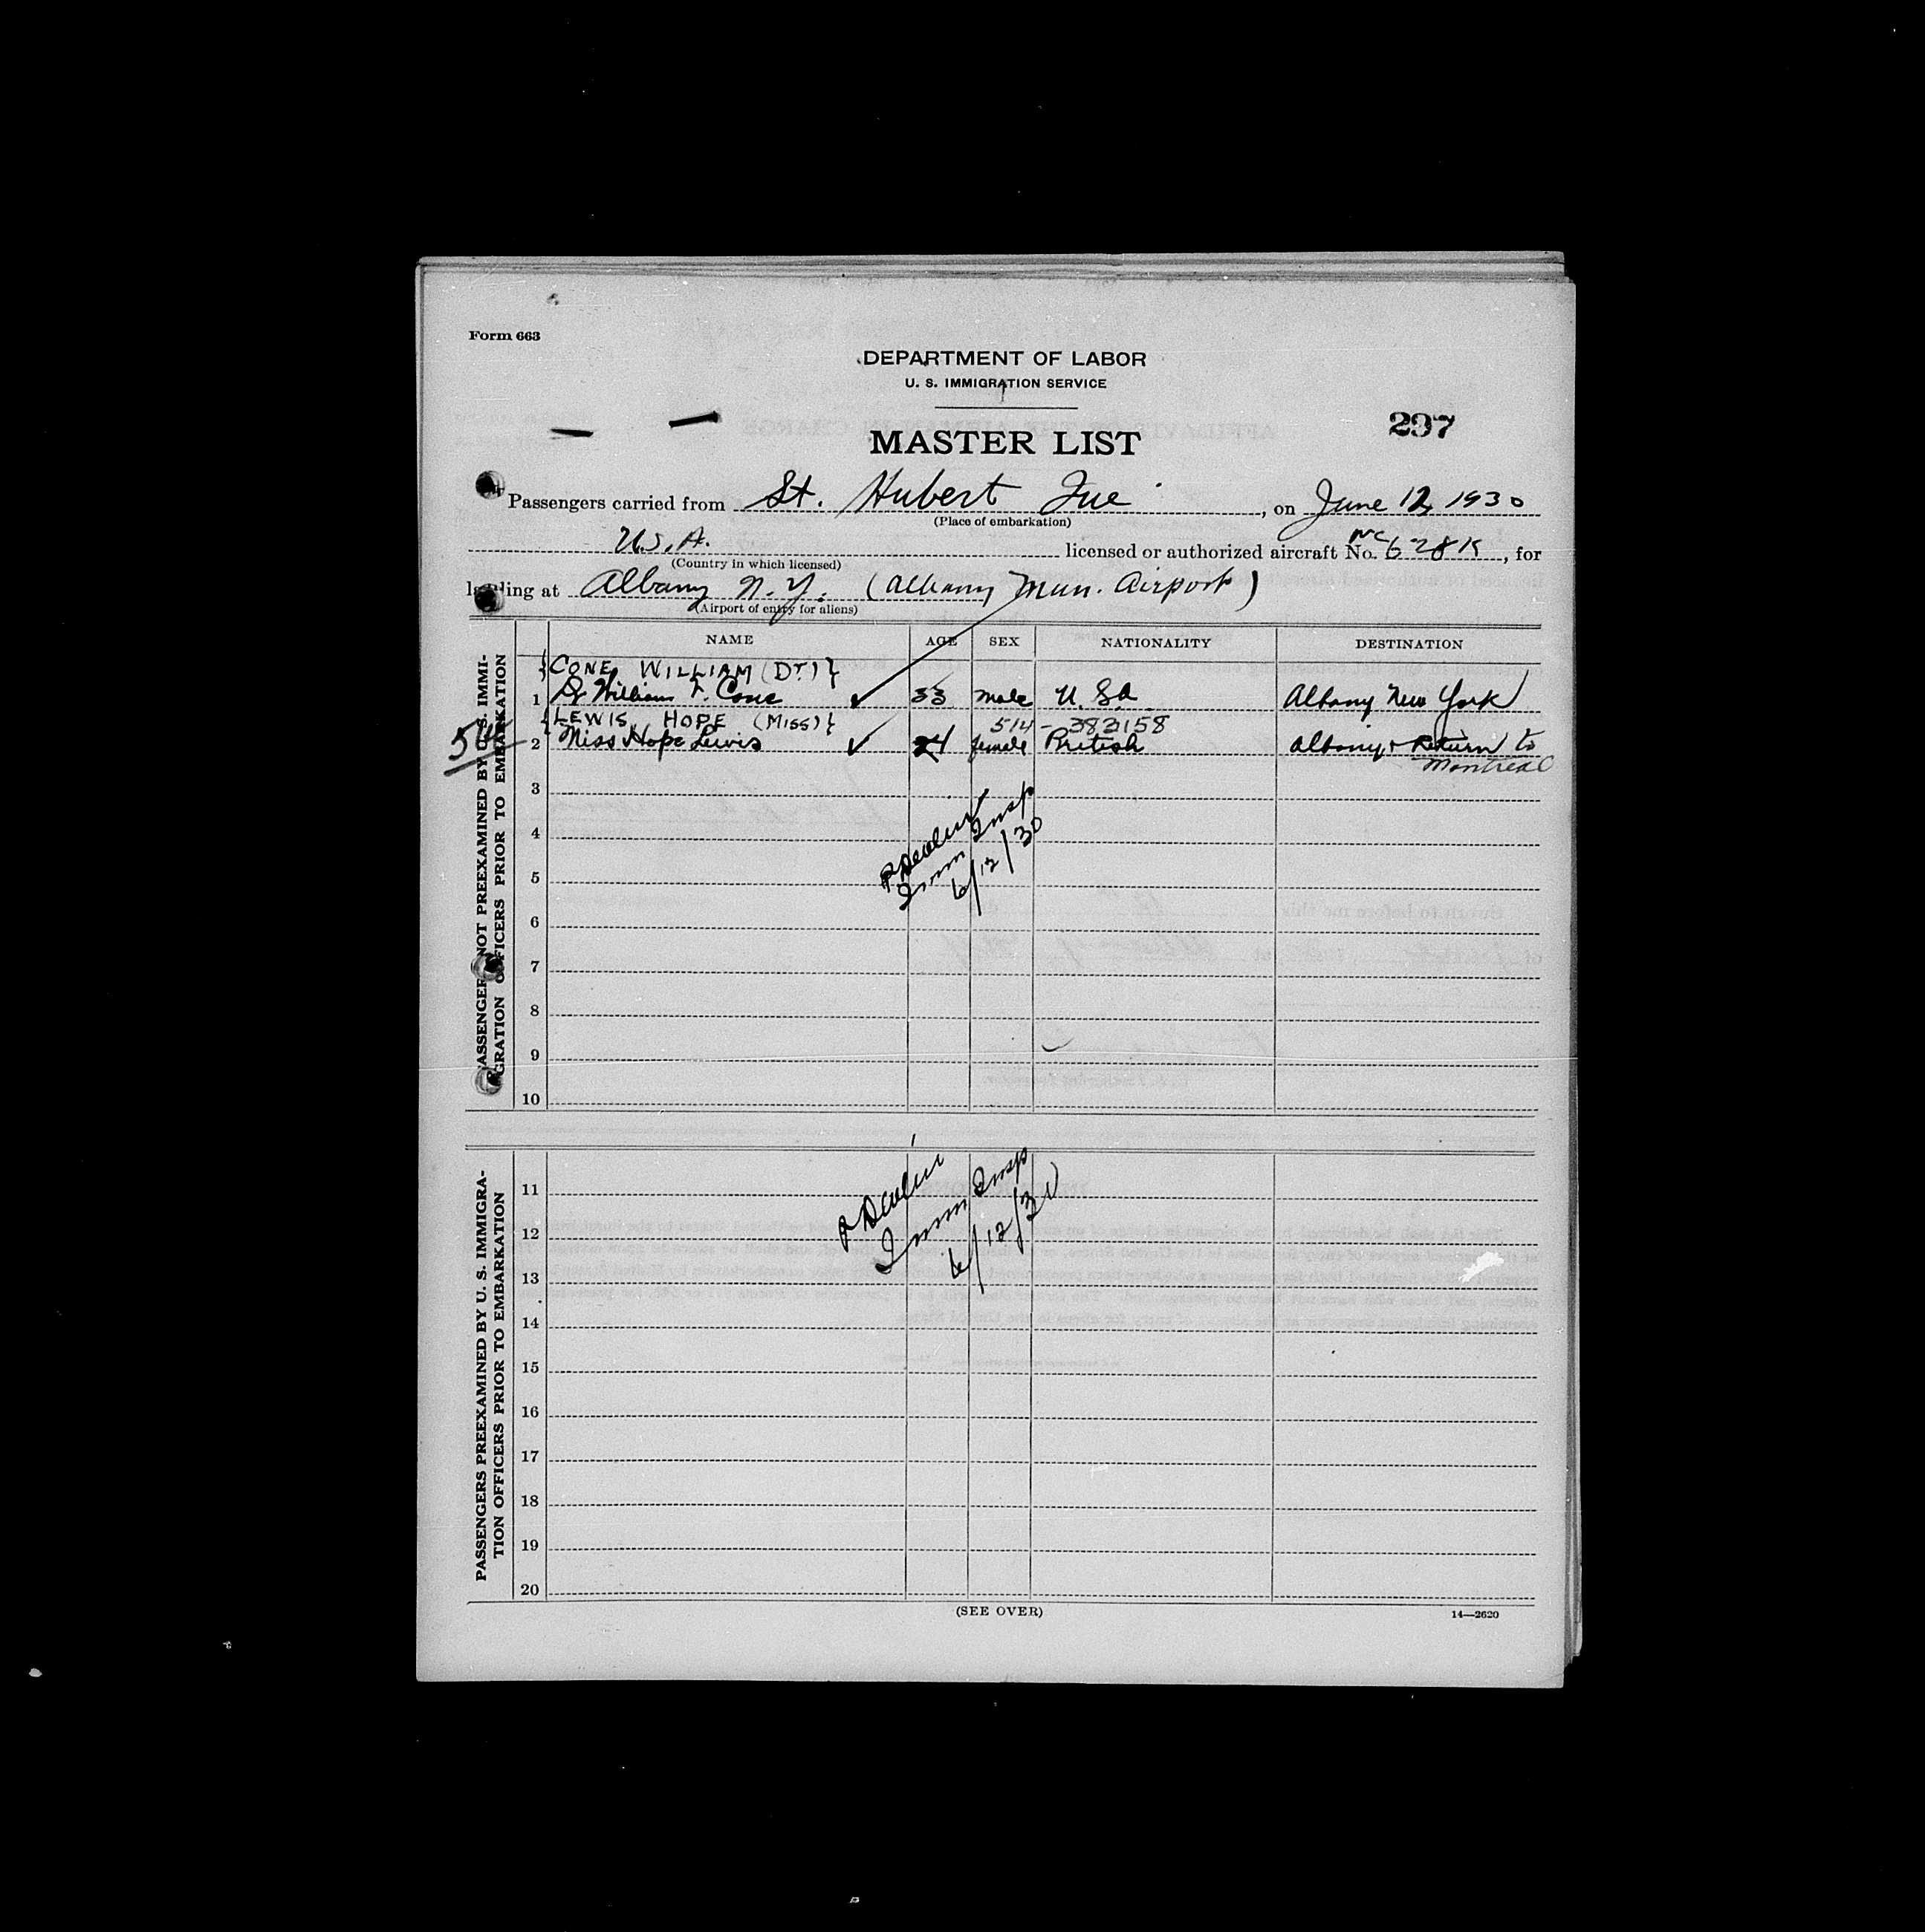 Form 663
DEPARTMENT OF LABOR
U. S. IMMIGRATION SERVICE
297
MASTER LIST
Passengers carried from St. Hubert Que, on June 12, 1930
(Place of embarkation)
U.S.A. licensed or authorized aircraft No. NC 628K, for
(Country in which licensed)
landing at Albany N.Y. (Albany Mun. Airport)
(Airport of entry for aliens)
NAME AGE SEX NATIONALITY DESTINATION
PASSENGERS NOT PREEXAMINED BY U. S. IMMI-
GRATION OFFICERS PRIOR TO EMBARKATION
{CONE, WILLIAM (Dr.)}
1 Dr William V. Cone ✓ 33 male U.S.A Albany New York
{LEWIS, HOPE (MISS)} 514-383158
2 Miss Hope Lewis ✓ 24 female British Albany + Return to
Montreal
3
4
5
6
7
8
9
10
P Devlin
Imm Insp
6/12/30
PASSENGERS PREEXAMINED BY U. S. IMMIGRA-
TION OFFICERS PRIOR TO EMBARKATION
11
12
13
14
15
16
17
18
19
20
P Devlin
Imm Insp
6/12/30
(SEE OVER) 14—2620